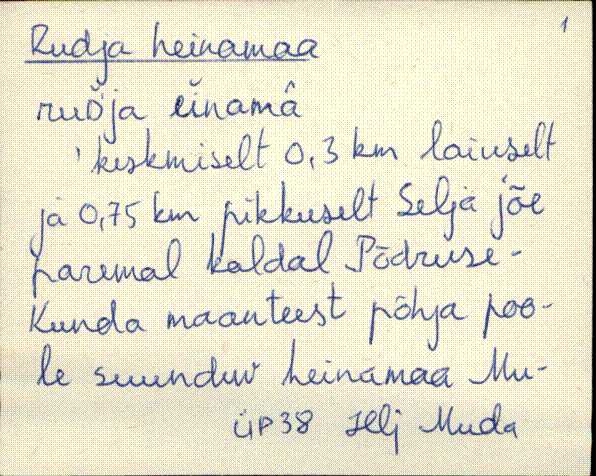 1
Rudja heinamaa
ruďja einamâ
keskmiselt 0,3 km laiuselt
ja 0,75 km pikkuselt Selja jõe
paremal kaldal Põdruse-
Kunda maanteest põhja poo-
le suunduv heinamaa Mu-
ÜP38 Helj Muda